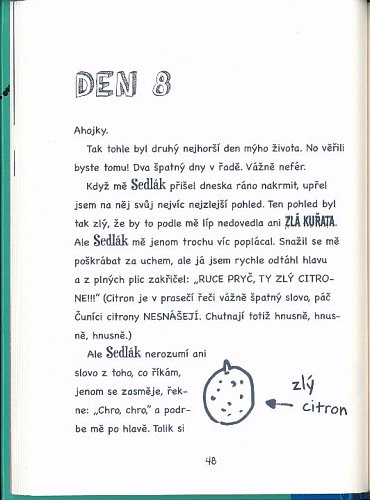 DEN 8
Ahojky.
Tak tohle byl druhý nejhorší den mýho života. No věřili
byste tomu! Dva špatný dny v řadě. Vážně nefér.
Když mě Sedlák přišel dneska ráno nakrmit, upřel
jsem na něj svůj nejvíc nejzlejší pohled. Ten pohled byl
tak zlý, že by to podle mě líp nedovedla ani ZLÁ KUŘATA.
Ale Sedlák mě jenom trochu víc poplácal. Snažil se mě
poškrábat za uchem, ale já jsem rychle odtáhl hlavu
a z plných plic zakřičel: „RUCE PRYČ, TY ZLÝ CITRO-
NE!!!" (Citron je v prasečí řeči vážně špatný slovo, páč
Čuníci citrony NESNÁŠEJÍ. Chutnají totiž hnusně, hnus-
ně, hnusně.)
Ale Sedlák nerozumí ani
slovo z toho, co říkám,
jenom se zasměje, řek-
ne: „Chro, chro," a podr-
be mě po hlavě. Tolik si
zlý
citron
48